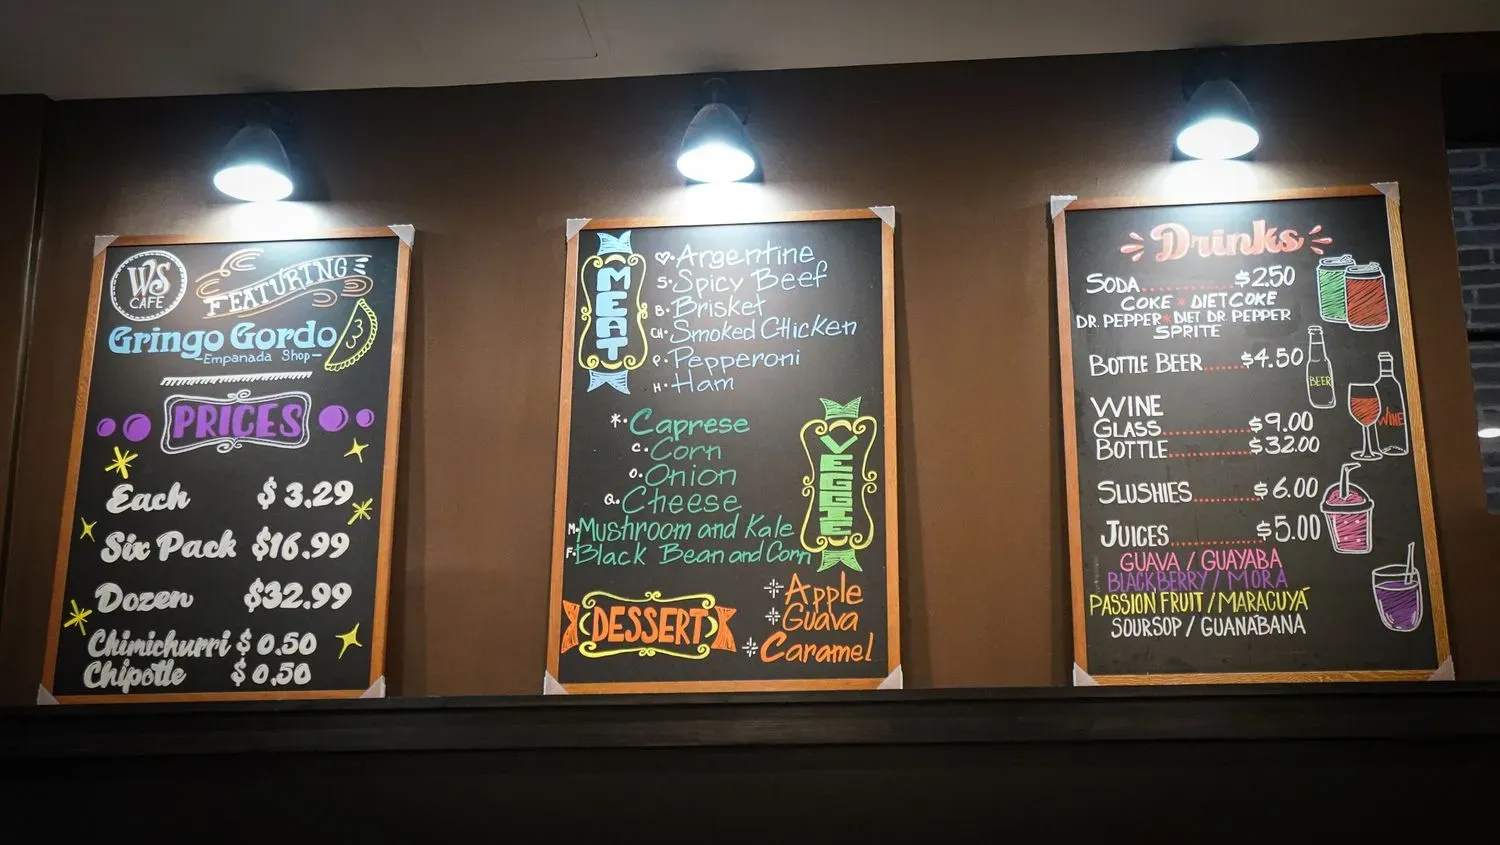 WS
CAFE
FEATURING
Gringo Gordo
-Empanada Shop-
PRICES
Each $3.29
Six Pack $16.99
Dozen $32.99
Chimichurri $0.50
Chipotle $0.50
MEAT
Argentine
S. Spicy Beef
B. Brisket
CH. Smoked Chicken
P. Pepperoni
H. Ham
*. Caprese
C. Corn
O. Onion
Q. Cheese
M. Mushroom and Kale
F. Black Bean and Corn
VEGGIE
DESSERT
Apple
Guava
Caramel
Drinks
SODA........$2.50
COKE * DIET COKE
DR. PEPPER * DIET DR. PEPPER
SPRITE
BOTTLE BEER......$4.50
BEER
WINE
GLASS............$9.00
BOTTLE...........$32.00
WINE
SLUSHIES........$6.00
JUICES............$5.00
GUAVA / GUAYABA
BLACKBERRY / MORA
PASSION FRUIT / MARACUYÁ
SOURSOP / GUANABANA